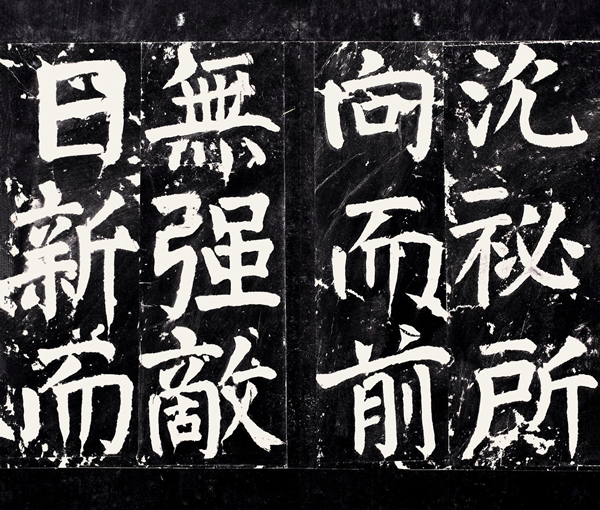 沉祕所
向而前
無强敵
日新而